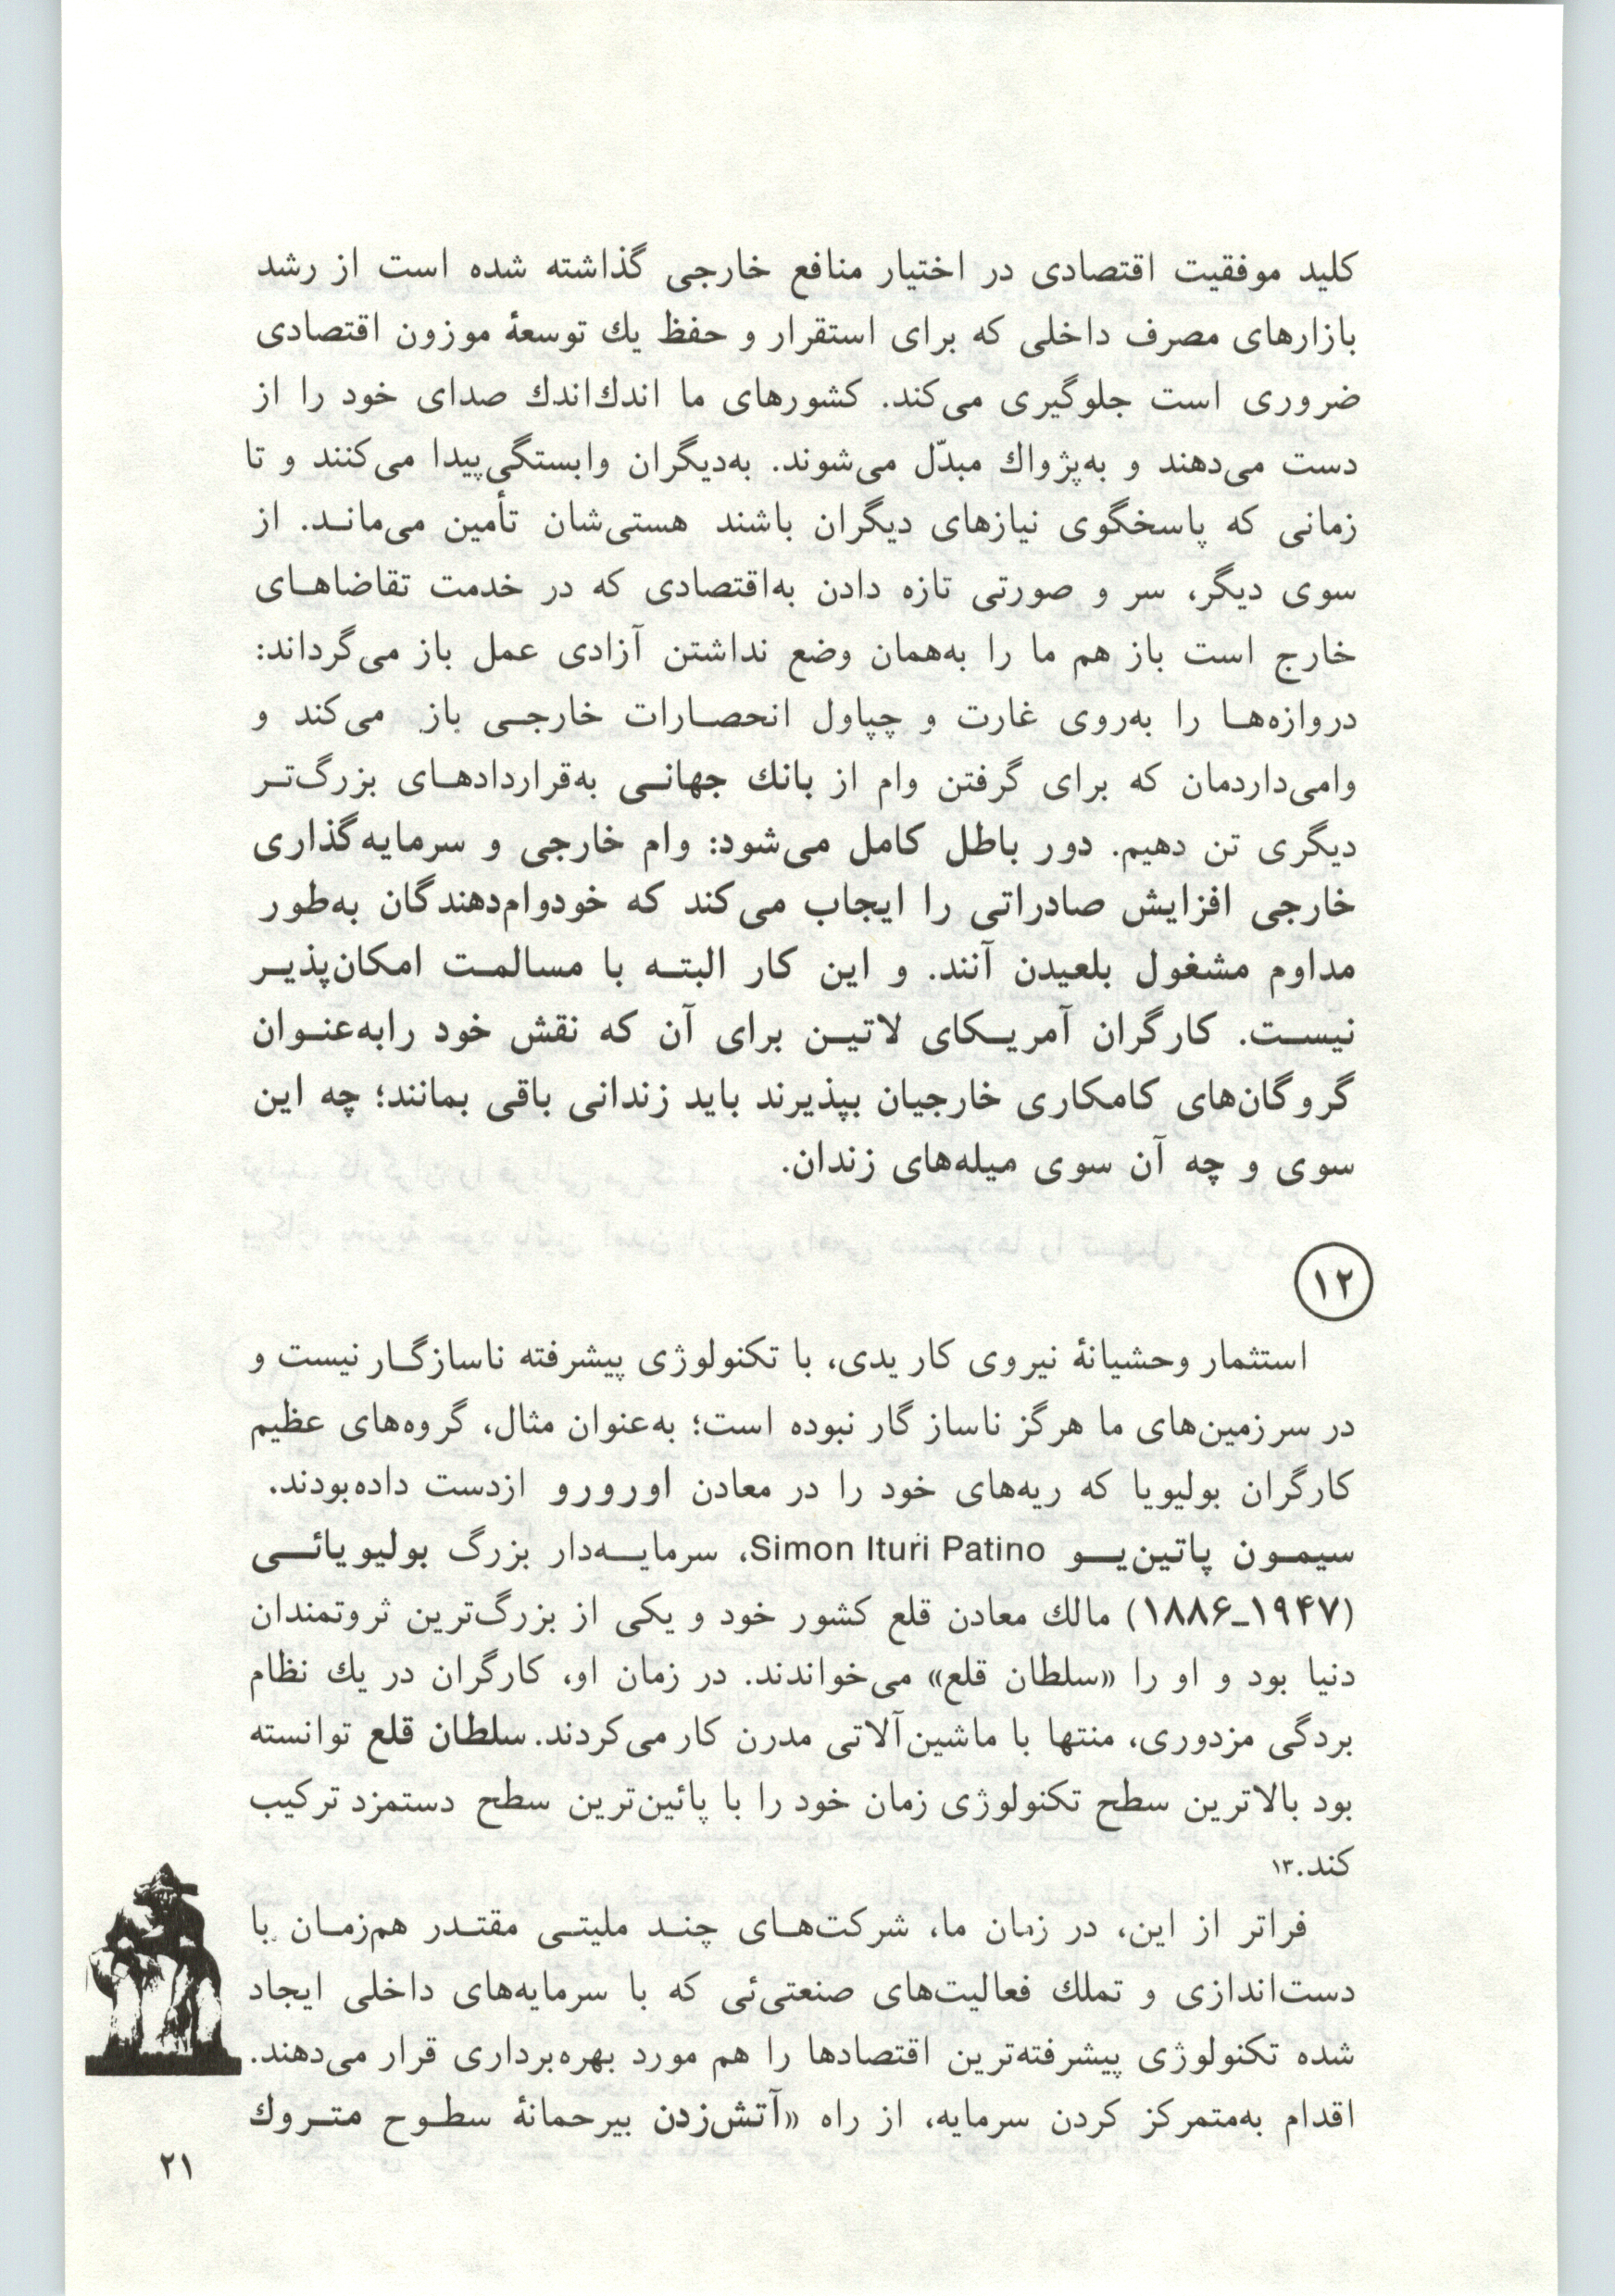 کلید موفقیت اقتصادی در اختیار منافع خارجی گذاشته شده است از رشد
بازارهای مصرف داخلی که برای استقرار و حفظ یك توسعهٔ موزون اقتصادی
ضروری است جلوگیری می‌کند. کشورهای ما اندك‌اندك صدای خود را از
دست می‌دهند و به‌پژواك مبدّل می‌شوند. به‌دیگران وابستگی‌پیدا می‌کنند و تا
زمانی که پاسخگوی نیازهای دیگران باشند هستی‌شان تأمین می‌مانـد. از
سوی دیگر، سر و صورتی تازه دادن به‌اقتصادی که در خدمت تقاضاهـای
خارج است باز هم ما را به‌همان وضع نداشتن آزادی عمل باز می‌گرداند:
دروازه‌هـا را به‌روی غارت و چپاول انحصـارات خارجـی باز می‌کند و
وامی‌داردمان که برای گرفتن وام از بانك جهانـی به‌قراردادهـای بزرگ‌تـر
دیگری تن دهیم. دور باطل کامل می‌شود: وام خارجی و سرمایه‌گذاری
خارجی افزایش صادراتی را ایجاب می‌کند که خودوام‌دهندگان به‌طور
مداوم مشغول بلعیدن آنند. و این کار البتـه با مسالمـت امکان‌پذیـر
نیسـت. کارگران آمریـکای لاتیـن برای آن که نقش خود رابه‌عنـوان
گروگان‌های کامکاری خارجیان بپذیرند باید زندانی باقی بمانند؛ چه این
سوی و چه آن سوی میله‌های زندان.
۱۲
استثمار وحشیانهٔ نیروی کار یدی، با تکنولوژی پیشرفته ناسازگـار نیست و
در سرزمین‌های ما هرگز ناسازگار نبوده است؛ به‌عنوان مثال، گروه‌های عظیم
کارگران بولیویا که ریه‌های خود را در معادن اورورو ازدست داده‌بودند.
سیمـون پاتین‌یـو Simon Ituri Patino، سرمایـه‌دار بزرگ بولیویائـی
(۱۹۴۷ـ۱۸۸۶) مالك معادن قلع کشور خود و یکی از بزرگ‌ترین ثروتمندان
دنیا بود و او را «سلطان قلع» می‌خواندند. در زمان او، کارگران در یك نظام
بردگی مزدوری، منتها با ماشین‌آلاتی مدرن کار می‌کردند. سلطان قلع توانسته
بود بالاترین سطح تکنولوژی زمان خود را با پائین‌ترین سطح دستمزد ترکیب
کند.۱۳
فراتر از این، در زمان ما، شرکت‌هـای چنـد ملیتـی مقتـدر هم‌زمـان با
دست‌اندازی و تملك فعالیت‌های صنعتی‌ئی که با سرمایه‌های داخلی ایجاد
شده تکنولوژی پیشرفته‌ترین اقتصادها را هم مورد بهره‌برداری قرار می‌دهند.
اقدام به‌متمرکز کردن سرمایه، از راه «آتش‌زدن بیرحمانهٔ سطـوح متـروك
۲۱